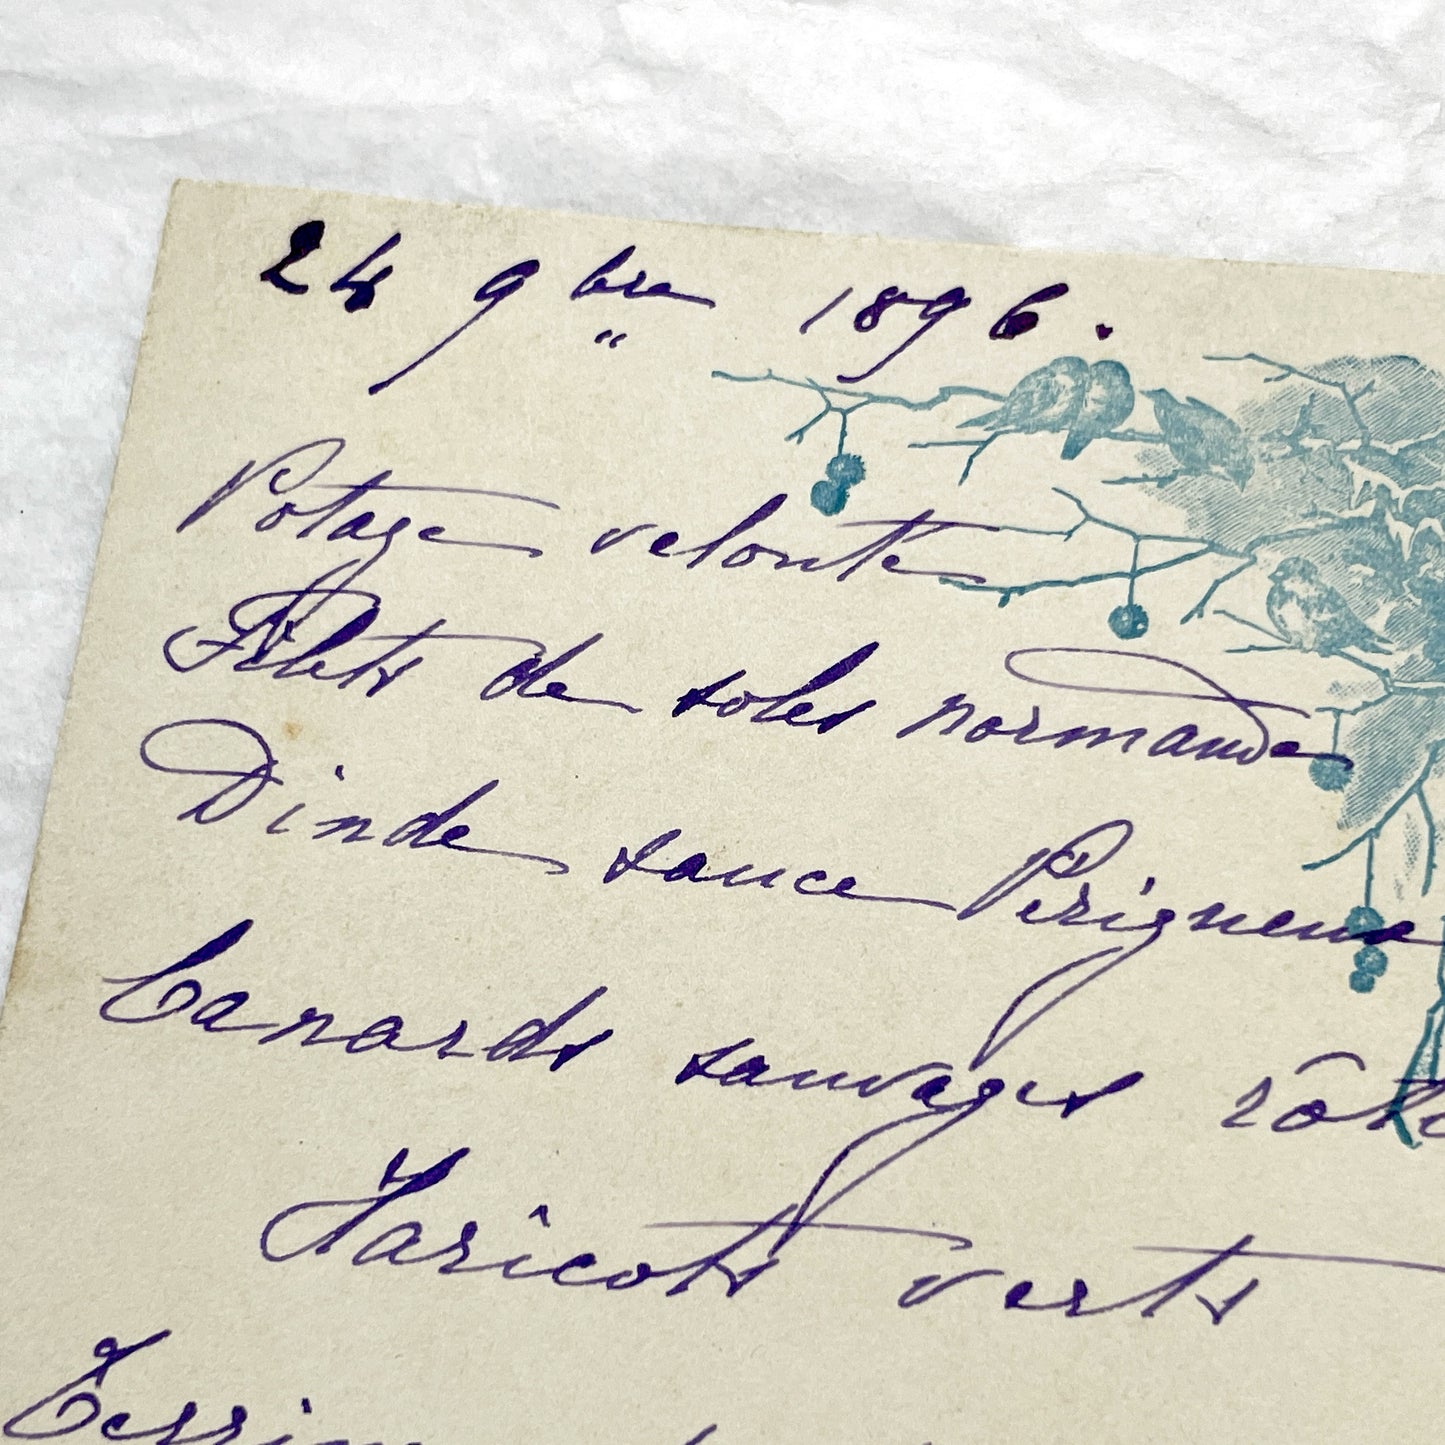 24 9bre 1896.
Potage velouté
Filets de soles normande
Dinde sauce Périgueux
Canards sauvages rôtis
Haricots verts